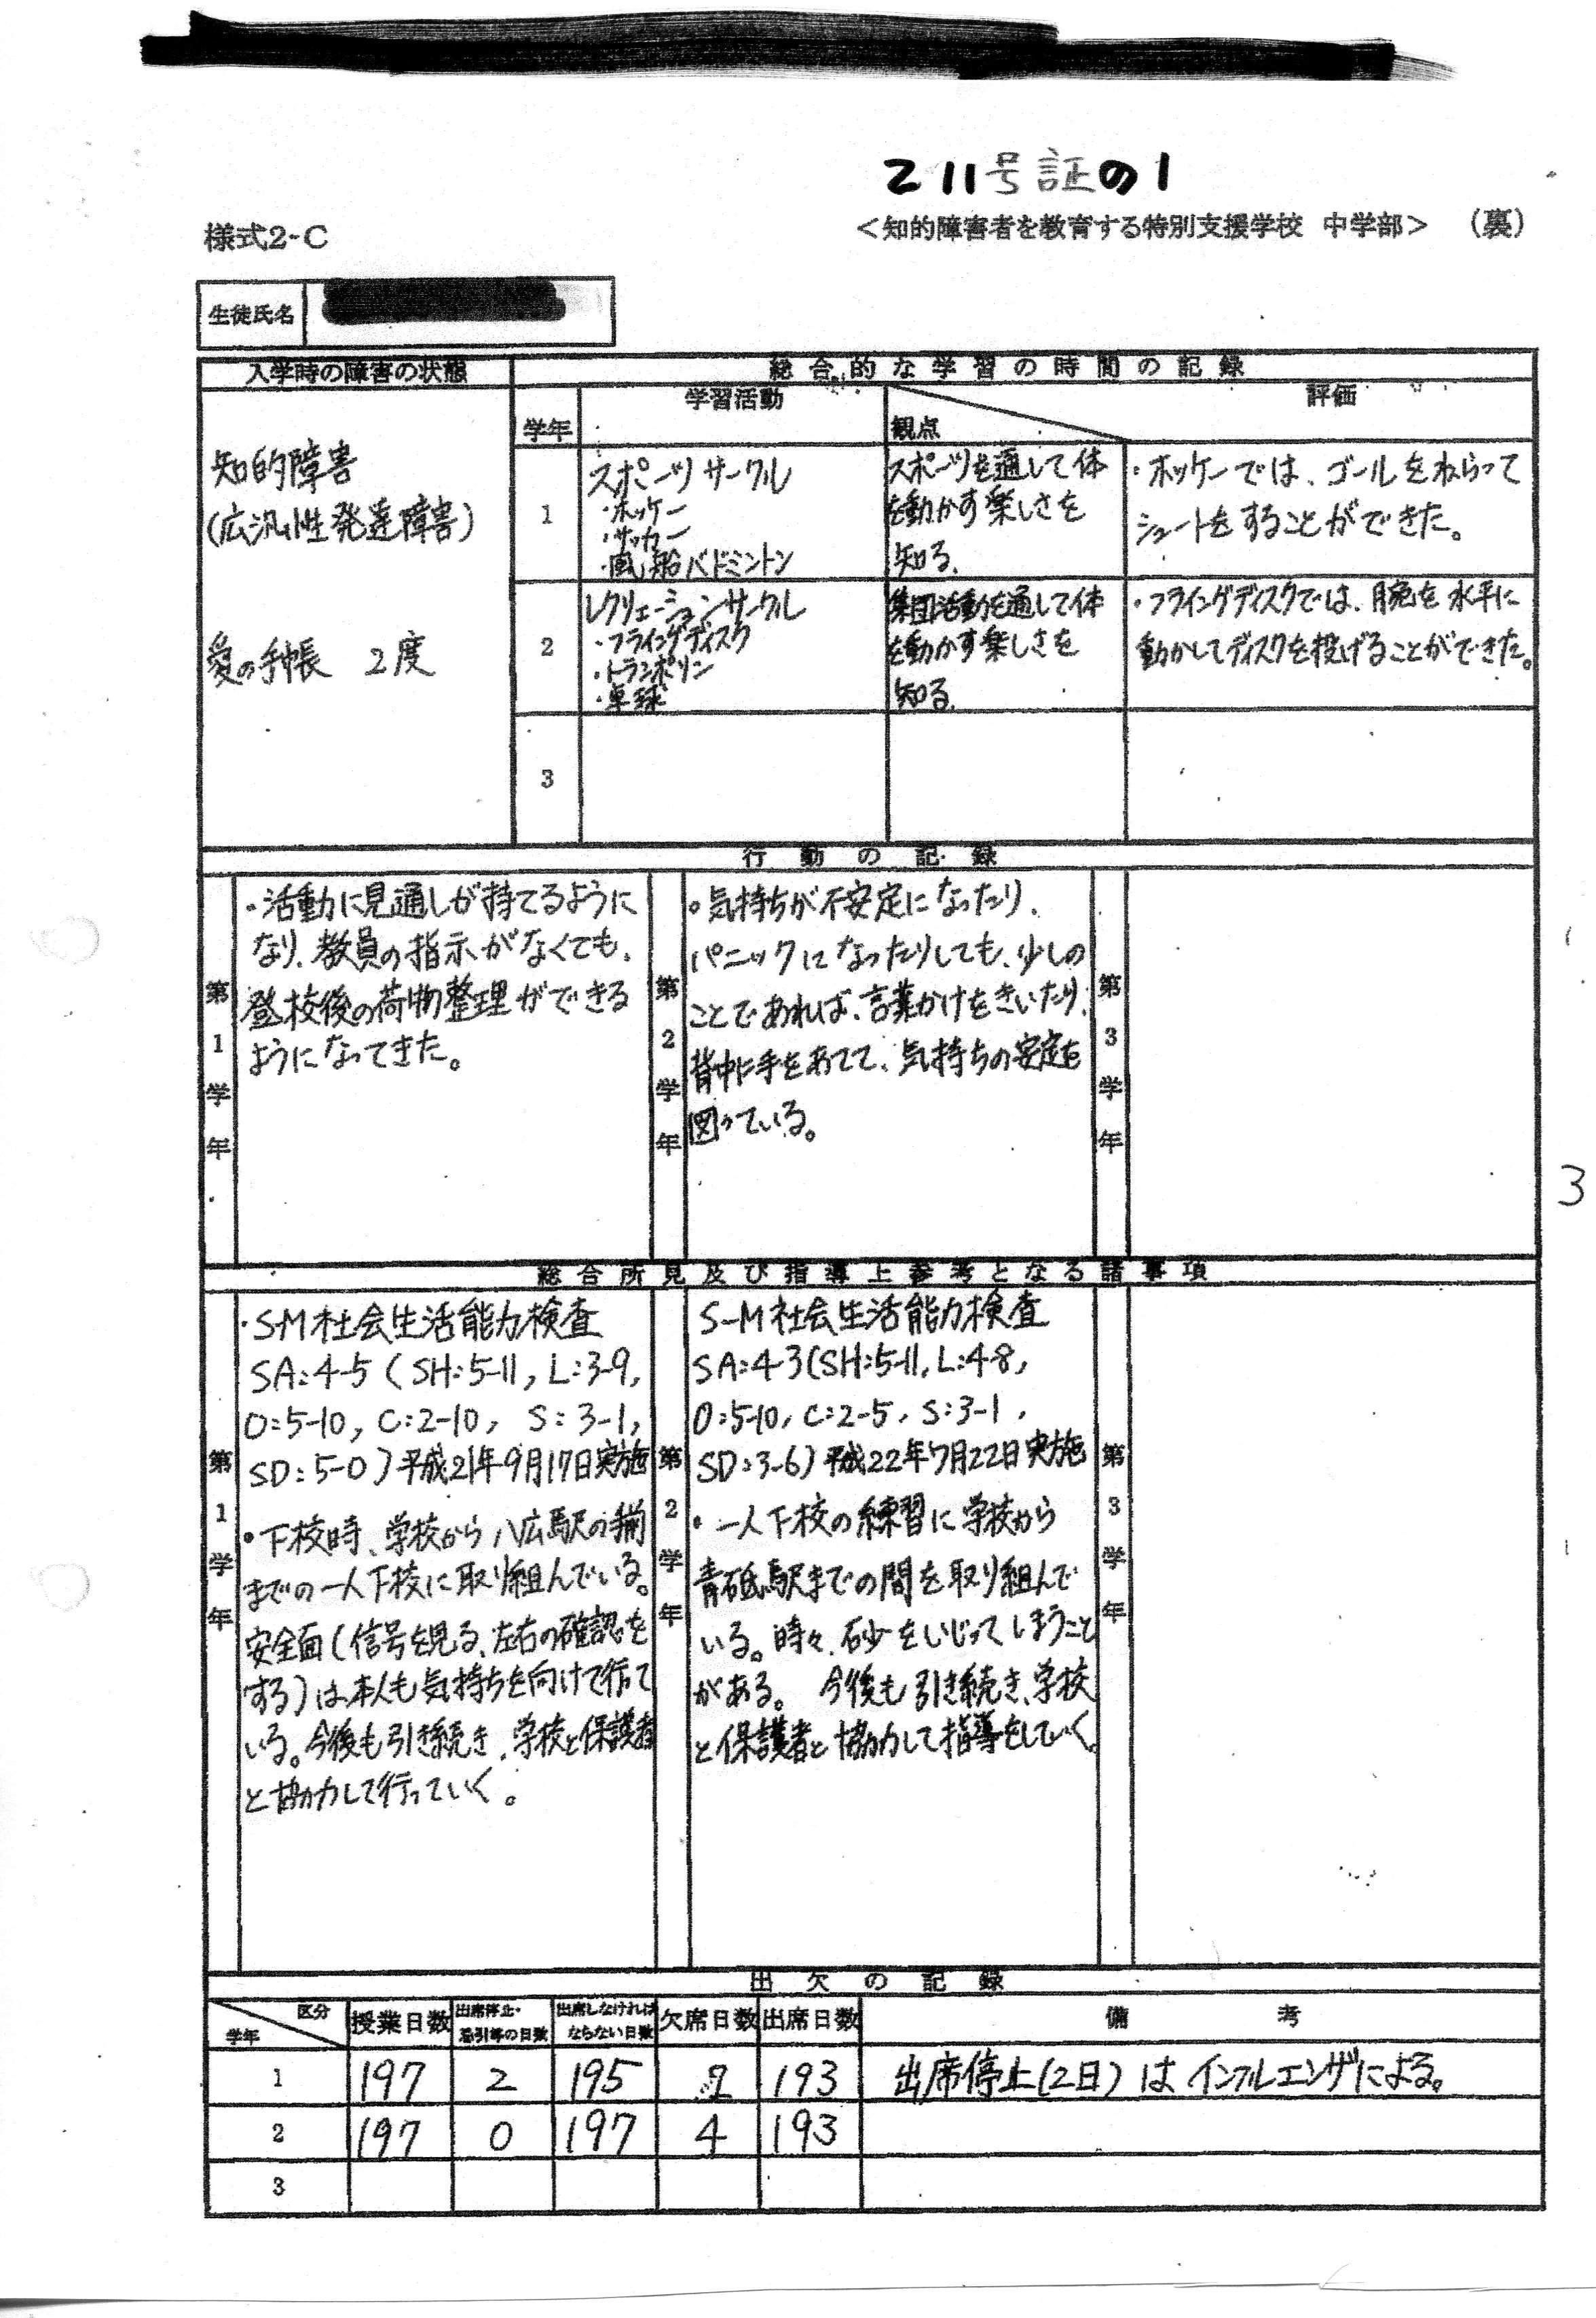 乙11号証の1
様式2-C
<知的障害者を教育する特別支援学校 中学部> (裏)
生徒氏名
入学時の障害の状態
知的障害
(広汎性発達障害)
愛の手帳 2度
総合的な学習の時間の記録
学年 学習活動 観点 評価
1
スポーツサークル
・ホッケー
・サッカー
・風船バドミントン
スポーツを通して体
を動かす楽しさを
知る。
・ホッケーでは、ゴールをねらって
シュートをすることができた。
2
レクリエーションサークル
・フライングディスク
・トランポリン
・卓球
集団活動を通して体
を動かす楽しさを
知る。
・フライングディスクでは、腕を水平に
動かしてディスクを投げることができた。
3
行動の記録
第1学年
・活動に見通しが持てるように
なり、教員の指示がなくても、
登校後の荷物整理ができる
ようになってきた。
第2学年
。気持ちが不安定になったり、
パニックになったりしても、少しの
ことであれば、言葉かけをきいたり、
背中に手をあてて、気持ちの安定を
図っている。
第3学年
総合所見及び指導上参考となる諸事項
第1学年
・S-M社会生活能力検査
SA:4-5(SH:5-11, L:3-9,
O:5-10, C:2-10, S:3-1,
SD:5-0)平成21年9月17日実施
・下校時、学校から八広駅の前
までの一人下校に取り組んでいる。
安全面(信号を見る、左右の確認を
する)は本人も気持ちを向けて行って
いる。今後も引き続き、学校と保護者
と協力して行っていく。
第2学年
S-M社会生活能力検査
SA:4-3(SH:5-11, L:4-8,
O:5-10, C:2-5, S:3-1,
SD:3-6)平成22年7月22日実施
・一人下校の練習に学校から
青砥駅までの間を取り組んで
いる。時々、砂をいじってしまうこと
がある。 今後も引き続き、学校
と保護者と協力して指導をしていく。
第3学年
3
出欠の記録
区分 学年 授業日数 出席停止・忌引等の日数 出席しなければならない日数 欠席日数 出席日数 備考
1 197 2 195 2 193 出席停止(2日)はインフルエンザによる。
2 197 0 197 4 193
3